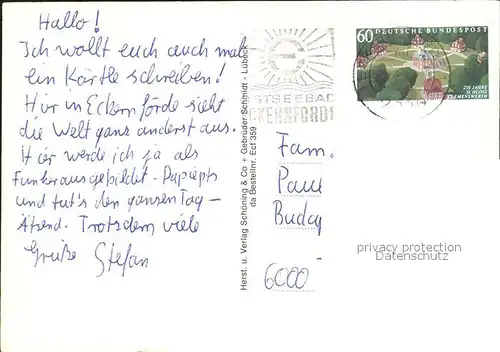 Hallo!
Ich wollt euch auch mal
ein Kärtle schreiben!
Hir in Eckernförde sieht
die Welt ganz anderst aus.
Hier werde ich ja als
Funker ausgebildet. Papiepts
und tut's den ganzen Tag –
Ätzend. Trotzdem viele
Grüße Stefan
Herst. u. Verlag Schöning & Co + Gebrüder Schmidt - Lübeck
da Bestellnr. Ecf 359
OSTSEEBAD
ECKERNFÖRDE
60 DEUTSCHE BUNDESPOST
250 JAHRE
SCHLOSS
CLEMENSWERTH
Fam.
Paul
Buday
6000
privacy protection
Datenschutz